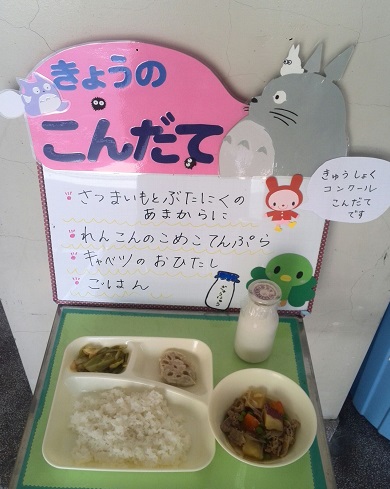 きょうの
こんだて
きゅうしょく
コンクール
こんだて
です
さつまいもとぶたにくの
あまからに
れんこんのこめこてんぷら
キャベツのおひたし
ごはん